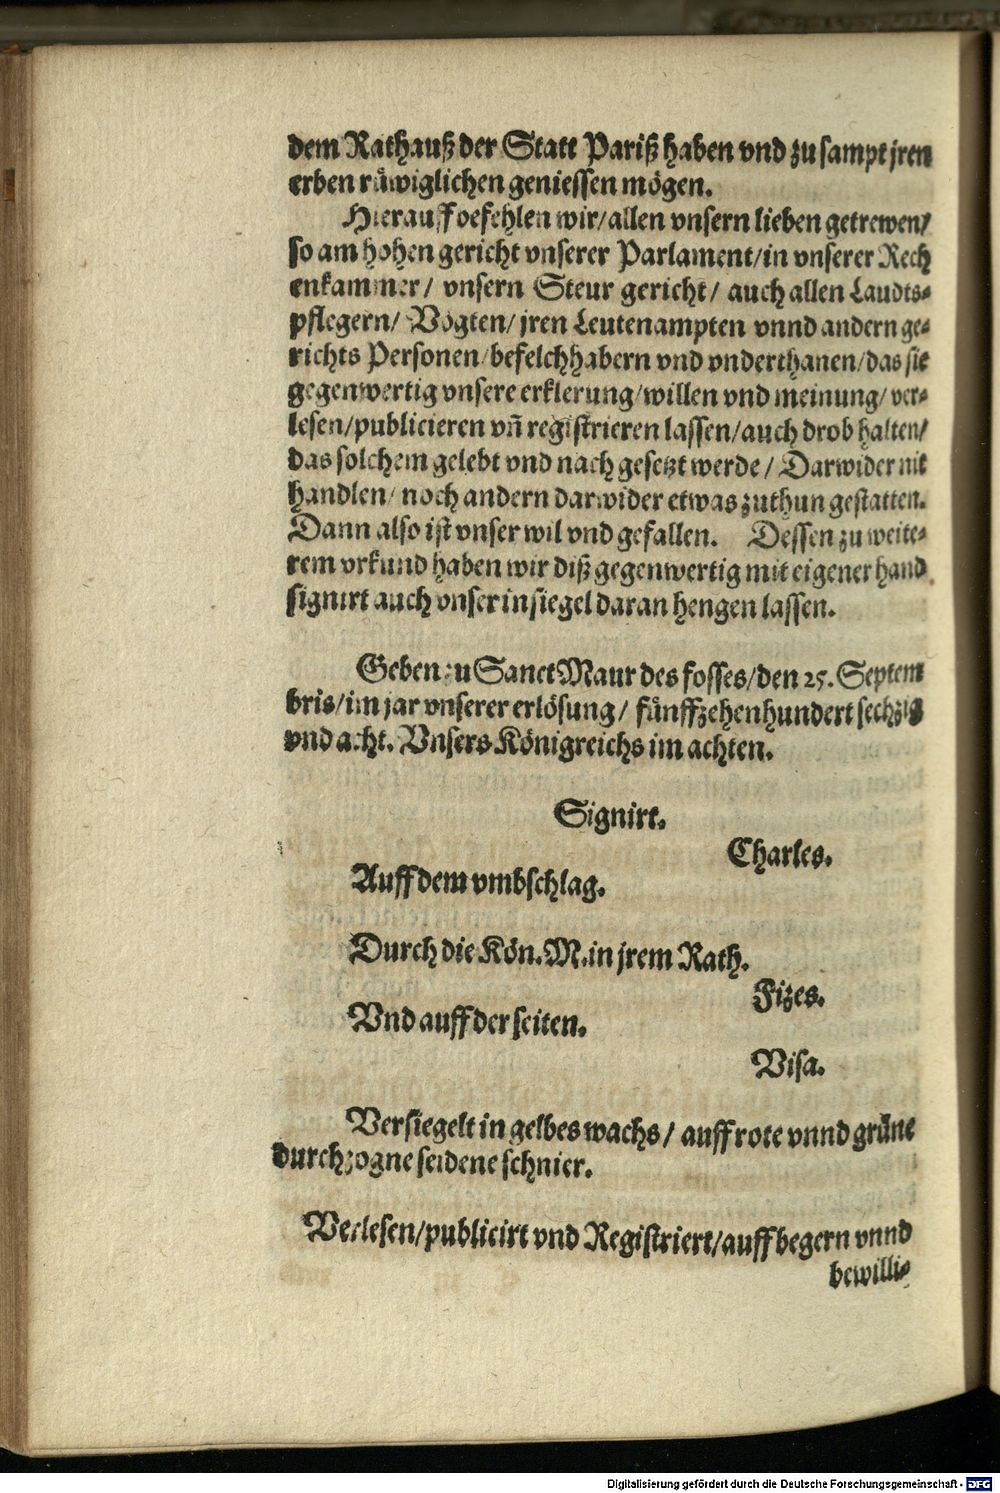 dem Rathauß der Statt Pariß haben vnd zu sampt jren
erben rüwiglichen geniessen mögen.
Hierauff befehlen wir/allen vnsern lieben getrewen/
so am hohen gericht vnserer Parlament/in vnserer Rech
enkammer/ vnsern Steur gericht/ auch allen Landts⸗
pflegern/ Vögten/ jren Leutenampten vnnd andern ge⸗
richts Personen/befelchhabern vnd vnderthanen/das sie
gegenwertig vnsere erklerung/willen vnd meinung/ver⸗
lesen/publicieren vn̄ registrieren lassen/auch drob halten/
das solchem gelebt vnd nach gesetzt werde/ Darwider nit
handlen/ noch andern darwider etwas zuthun gestatten.
Dann also ist vnser wil vnd gefallen. Dessen zu weite⸗
rem vrkund haben wir diß gegenwertig mit eigener hand
signirt auch vnser insiegel daran hengen lassen.
Geben zu Sanct Maur des fosses/den 25. Septem
bris/im jar vnserer erlösung/ fünffzehenhundert sechzig
vnd acht. Vnsers Königreichs im achten.
Signirt.
Charles.
Auff dem vmbschlag.
Durch die Kön. M. in jrem Rath.
Fizes.
Vnd auff der seiten.
Visa.
Versiegelt in gelbes wachs/ auff rote vnnd grüne
durchzogne seidene schnier.
Verlesen/publicirt vnd Registriert/auff begern vnnd
bewilli⸗
Digitalisierung gefördert durch die Deutsche Forschungsgemeinschaft - DFG